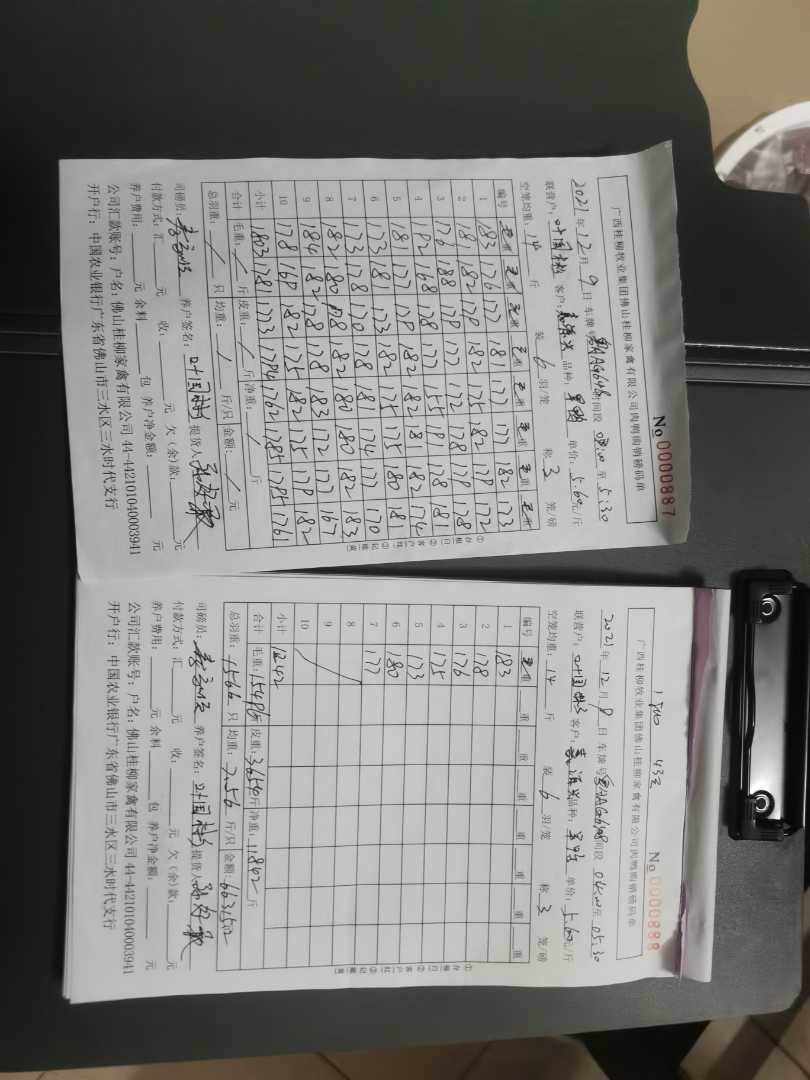 No 0000887
广西桂柳牧业集团佛山桂柳家禽有限公司肉鸭购销磅码单
2021年12月9日 车牌号 时间段 至5:30
联营户: 叶国 客户: 品种: 单价: 5.60元/斤
空笼均重: 14 斤 装 6 羽/笼 称 3 笼/磅
编号 毛重 毛重 毛重 毛重 毛重 毛重 毛重 毛重
1 183 176 177 181 177 177 182 173
2 181 182 178 182 175 182 178 172
3 176 188 178 177 172 178 178 178
4 182 168 178 177 155 181 178 181
5 181 177 178 182 182 181 182 174
6 173 181 173 182 175 175 180 181
7 173 178 170 178 181 174 177 170
8 182 180 178 182 180 180 182 183
9 184 182 178 178 183 172 177 167
10 178 168 182 175 182 175 178 182
小计 1803 1781 1773 1794 1762 1785 1795 1761
合计 毛重: / 斤 皮重: / 斤 净重: / 斤
总羽重: / 只 均重: / 斤/只 金额: / 元
司磅员: 养户签名: 叶国 提货人:
付款方式: 汇 元 收: 元 欠(余)款: 元
养户费用: 元 余料 包 养户净金额: 元
公司汇款账号: 户名: 佛山桂柳家禽有限公司 44-442101040003941
开户行: 中国农业银行广东省佛山市三水区三水时代支行
①存根白 ②客户红 ③记账黄
No 0000888
广西桂柳牧业集团佛山桂柳家禽有限公司肉鸭购销磅码单
2021年12月9日 车牌号 时间段 至05:30
联营户: 叶国 客户: 品种: 单价: 5.60元/斤
空笼均重: 14 斤 装 6 羽/笼 称 3 笼/磅
编号 毛重 重 重 重 重 重 重 重
1 183
2 178
3 176
4 175
5 173
6 180
7 177
8
9
10
小计 1242
合计 毛重: 15496斤 皮重: 3654斤 净重: 11842斤
总羽重: 1566 只 均重: 7.56 斤/只 金额: 66315.02
司磅员: 养户签名: 叶国 提货人:
付款方式: 汇 元 收: 元 欠(余)款: 元
养户费用: 元 余料 包 养户净金额: 元
公司汇款账号: 户名: 佛山桂柳家禽有限公司 44-442101040003941
开户行: 中国农业银行广东省佛山市三水区三水时代支行
①存根白 ②客户红 ③记账黄